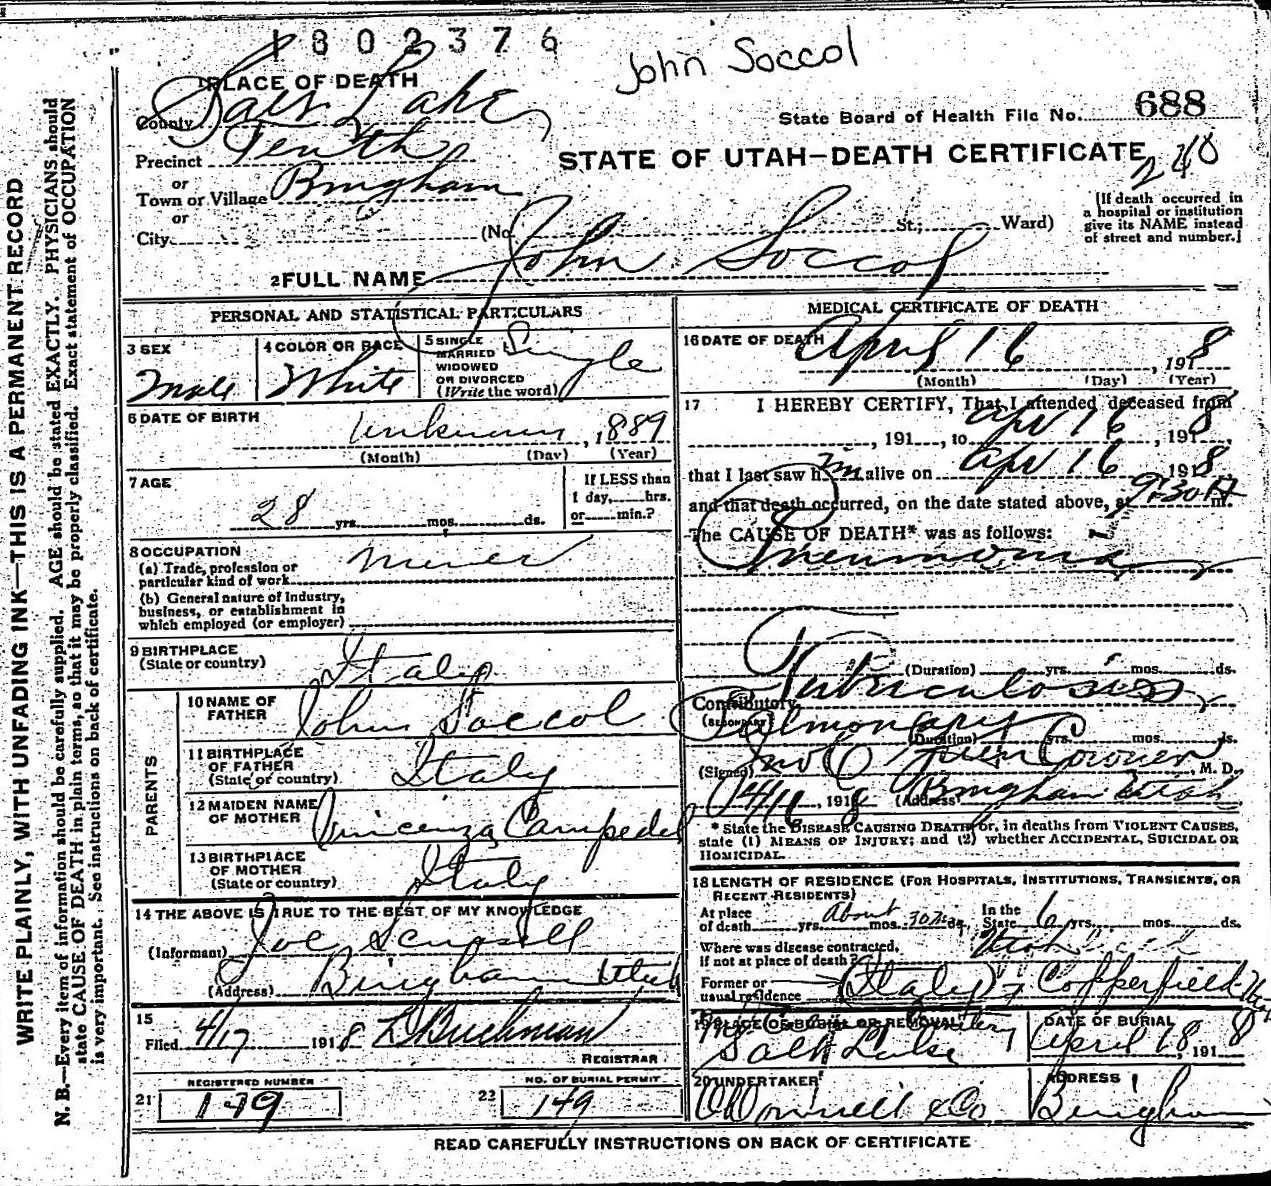 1802376
John Soccol
1 PLACE OF DEATH
County Salt Lake
State Board of Health File No. 688
Precinct Tenth
STATE OF UTAH—DEATH CERTIFICATE
240
or
Town or Village Bingham
or
City (No. St.; Ward)
[If death occurred in
a hospital or institution
give its NAME instead
of street and number.]
2 FULL NAME John Soccol
PERSONAL AND STATISTICAL PARTICULARS
3 SEX
Male
4 COLOR OR RACE
White
5 SINGLE
MARRIED
WIDOWED
OR DIVORCED
(Write the word)
Single
6 DATE OF BIRTH
Unknown, 1889
(Month) (Day) (Year)
7 AGE
28 yrs. mos. ds.
If LESS than
1 day, hrs.
or min.?
8 OCCUPATION
(a) Trade, profession or
particular kind of work
Miner
(b) General nature of Industry,
business, or establishment in
which employed (or employer)
9 BIRTHPLACE
(State or country)
Italy
PARENTS
10 NAME OF
FATHER
John Soccol
11 BIRTHPLACE
OF FATHER
(State or country)
Italy
12 MAIDEN NAME
OF MOTHER
Vincenza Campedel
13 BIRTHPLACE
OF MOTHER
(State or country)
Italy
14 THE ABOVE IS TRUE TO THE BEST OF MY KNOWLEDGE
(Informant) Joe
(Address) Bingham Utah
15
Filed 4/17 1918 L Buchman
REGISTRAR
21 REGISTERED NUMBER
149
22 NO. OF BURIAL PERMIT
149
MEDICAL CERTIFICATE OF DEATH
16 DATE OF DEATH
April 16, 1918
(Month) (Day) (Year)
17 I HEREBY CERTIFY, That I attended deceased from
, 191 , to Apr 16, 1918,
that I last saw him alive on Apr 16 1918
and that death occurred, on the date stated above, at 9:30 m.
The CAUSE OF DEATH* was as follows:
Pneumonia
(Duration) yrs. mos. ds.
Contributory Tuberculosis
(SECONDARY) Pulmonary
(Duration) yrs. mos. ds.
(Signed) Jno C Green Coroner, M. D.
4/16, 1918 (Address) Bingham Utah
* State the DISEASE CAUSING DEATH, or, in deaths from VIOLENT CAUSES,
state (1) MEANS OF INJURY; and (2) whether ACCIDENTAL, SUICIDAL OR
HOMICIDAL.
18 LENGTH OF RESIDENCE (FOR HOSPITALS, INSTITUTIONS, TRANSIENTS, OR
RECENT RESIDENTS)
At place
of death yrs. mos. ds. About 30
In the
State 6 yrs. mos. ds.
Where was disease contracted,
if not at place of death? Utah
Former or
usual residence (Italy) Copperfield
19 PLACE OF BURIAL OR REMOVAL
Salt Lake
DATE OF BURIAL
April 18, 1918
20 UNDERTAKER
O'Donnell & Co
ADDRESS
Bingham
READ CAREFULLY INSTRUCTIONS ON BACK OF CERTIFICATE
WRITE PLAINLY, WITH UNFADING INK—THIS IS A PERMANENT RECORD
N. B.—Every item of information should be carefully supplied. AGE should be stated EXACTLY. PHYSICIANS should
state CAUSE OF DEATH in plain terms, so that it may be properly classified. Exact statement of OCCUPATION
is very important. See instructions on back of certificate.